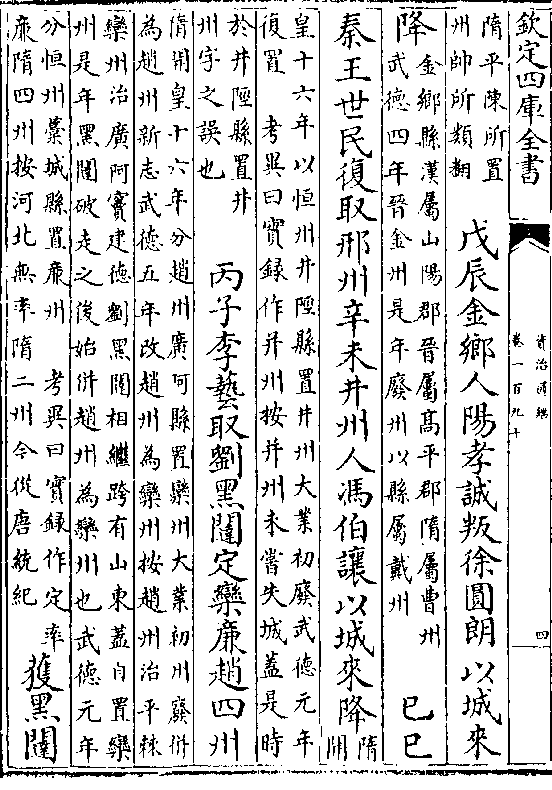 欽定四庫全書
資治通鑑
卷一百九十
四
隋平陳所置
州帥所類翻
戊辰金鄉人陽孝誠叛徐圓朗以城來
降
金鄉縣漢屬山陽郡晉屬高平郡隋屬曹州
武德四年晉金州是年廢州以縣屬戴州
己巳
秦王世民復取邢州辛未井州人馮伯讓以城來降
隋
開
皇十六年以恒州井陘縣置井州大業初廢武德元年
復置 考異曰實録作并州按并州未嘗失城蓋是時
於井陘縣置井
州字之誤也
丙子李藝取劉黑闥定欒廉趙四州
隋開皇十六年分趙州廣阿縣置欒州大業初州廢併
為趙州新志武德五年改趙州為欒州按趙州治平棘
欒州治廣阿竇建德劉黑闥相繼跨有山東蓋自置欒
州是年黑闥破走之後始併趙州為欒州也武德元年
分恒州藁城縣置廉州 考異曰實録作定率
廉隋四州按河北無率隋二州今從唐統紀
獲黑闥